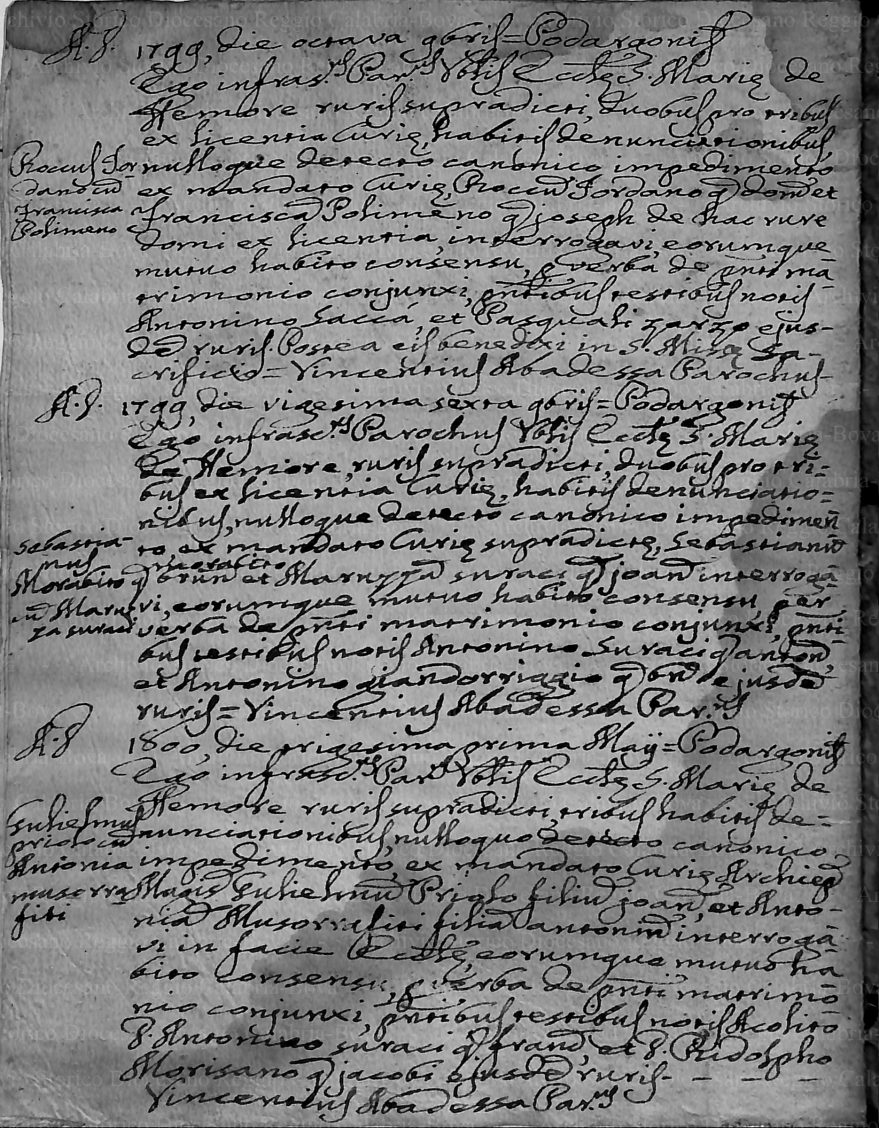 A. D. 1799, die octava 9bris = Podargonis
Ego infras.tus Par.s Vblis Eccl.ę S. Marię de
Nemore ruris supradicti, duobus pro tribus
ex licentia Curię, habitis denunciationibus,
Roccus Jor-
danò cũ
Francisca
Polimeno
nulloque detecto canonico impedimento
ex mandato Curię, Roccũ Jordano q̃ dom̃ et
Franciscã Polimeno q̃ joseph de hac rure
domi ex licentia, interrogavi, eorumque
mutuo habito consensu, p̱ verba de pñti ma-
trimonio conjunxi, pñtibus testibus notis
Antonino Saccà, et Pasquali Zarzo ejus-
dẽ ruris. Postea eis benedixi in S. Missę Sa-
crificio = Vincentius Abadessa Parochus -
A. D. 1799, die vigesima sexta 9bris = Podargonis
Ego infrasc.tus Parochus Vblis Eccl.ę S. Marię
de Nemore, ruris supradicti, duobus pro tri-
bus ex licentia Curię, habitis denunciatio=
nibus, nulloque detecto canonico impedimen
Sebastia-
nus
Morabito
cũ Maruz-
za suraci
to ex mandato Curię supradictę, Sebastianũ
morabito
q̃ brun̄ et Maruzzã suraci q̃ joan̄ interrogã
vi, eorumque mutuo habito consensu, per
verba de pñti matrimonio conjunxi, pñti-
bus testibus notis Antonino Suraci q̃ anton̄,
et Antonino giandorriggio q̃ brñ ejusdẽ
ruris = Vincentius Abadessa Par.us
A. D 1800, die trigesima prima May = Podargonis
Ego infrasc.tus Par.s Vblis Eccl.ę S. Marię de
Nemore ruris supradicti, tribus habitis de-
Gulielmus
priolo cũ
Antonia
musorra
fiti
nunciationibus, nulloquo detecto canonico
impedimento, ex mandato Curię Archiep̃
Magis Gulielmũ Priolo filiũ joan̄, et Anto-
niã Musorrafiti filiã antonin̄ interrogã
vi in facie Eccl.ę, eorumque mutuo hã
bito consensu, p̱ verba de pñti matrimõ
nio conjunxi, pñtibus testibus notis Acolito
D. Antonino suraci q̃ fran̄, et D. Ridolpho
Morisano q̃ jacobi ejusdẽ ruris - - - -
Vincentius Abadessa Par.us